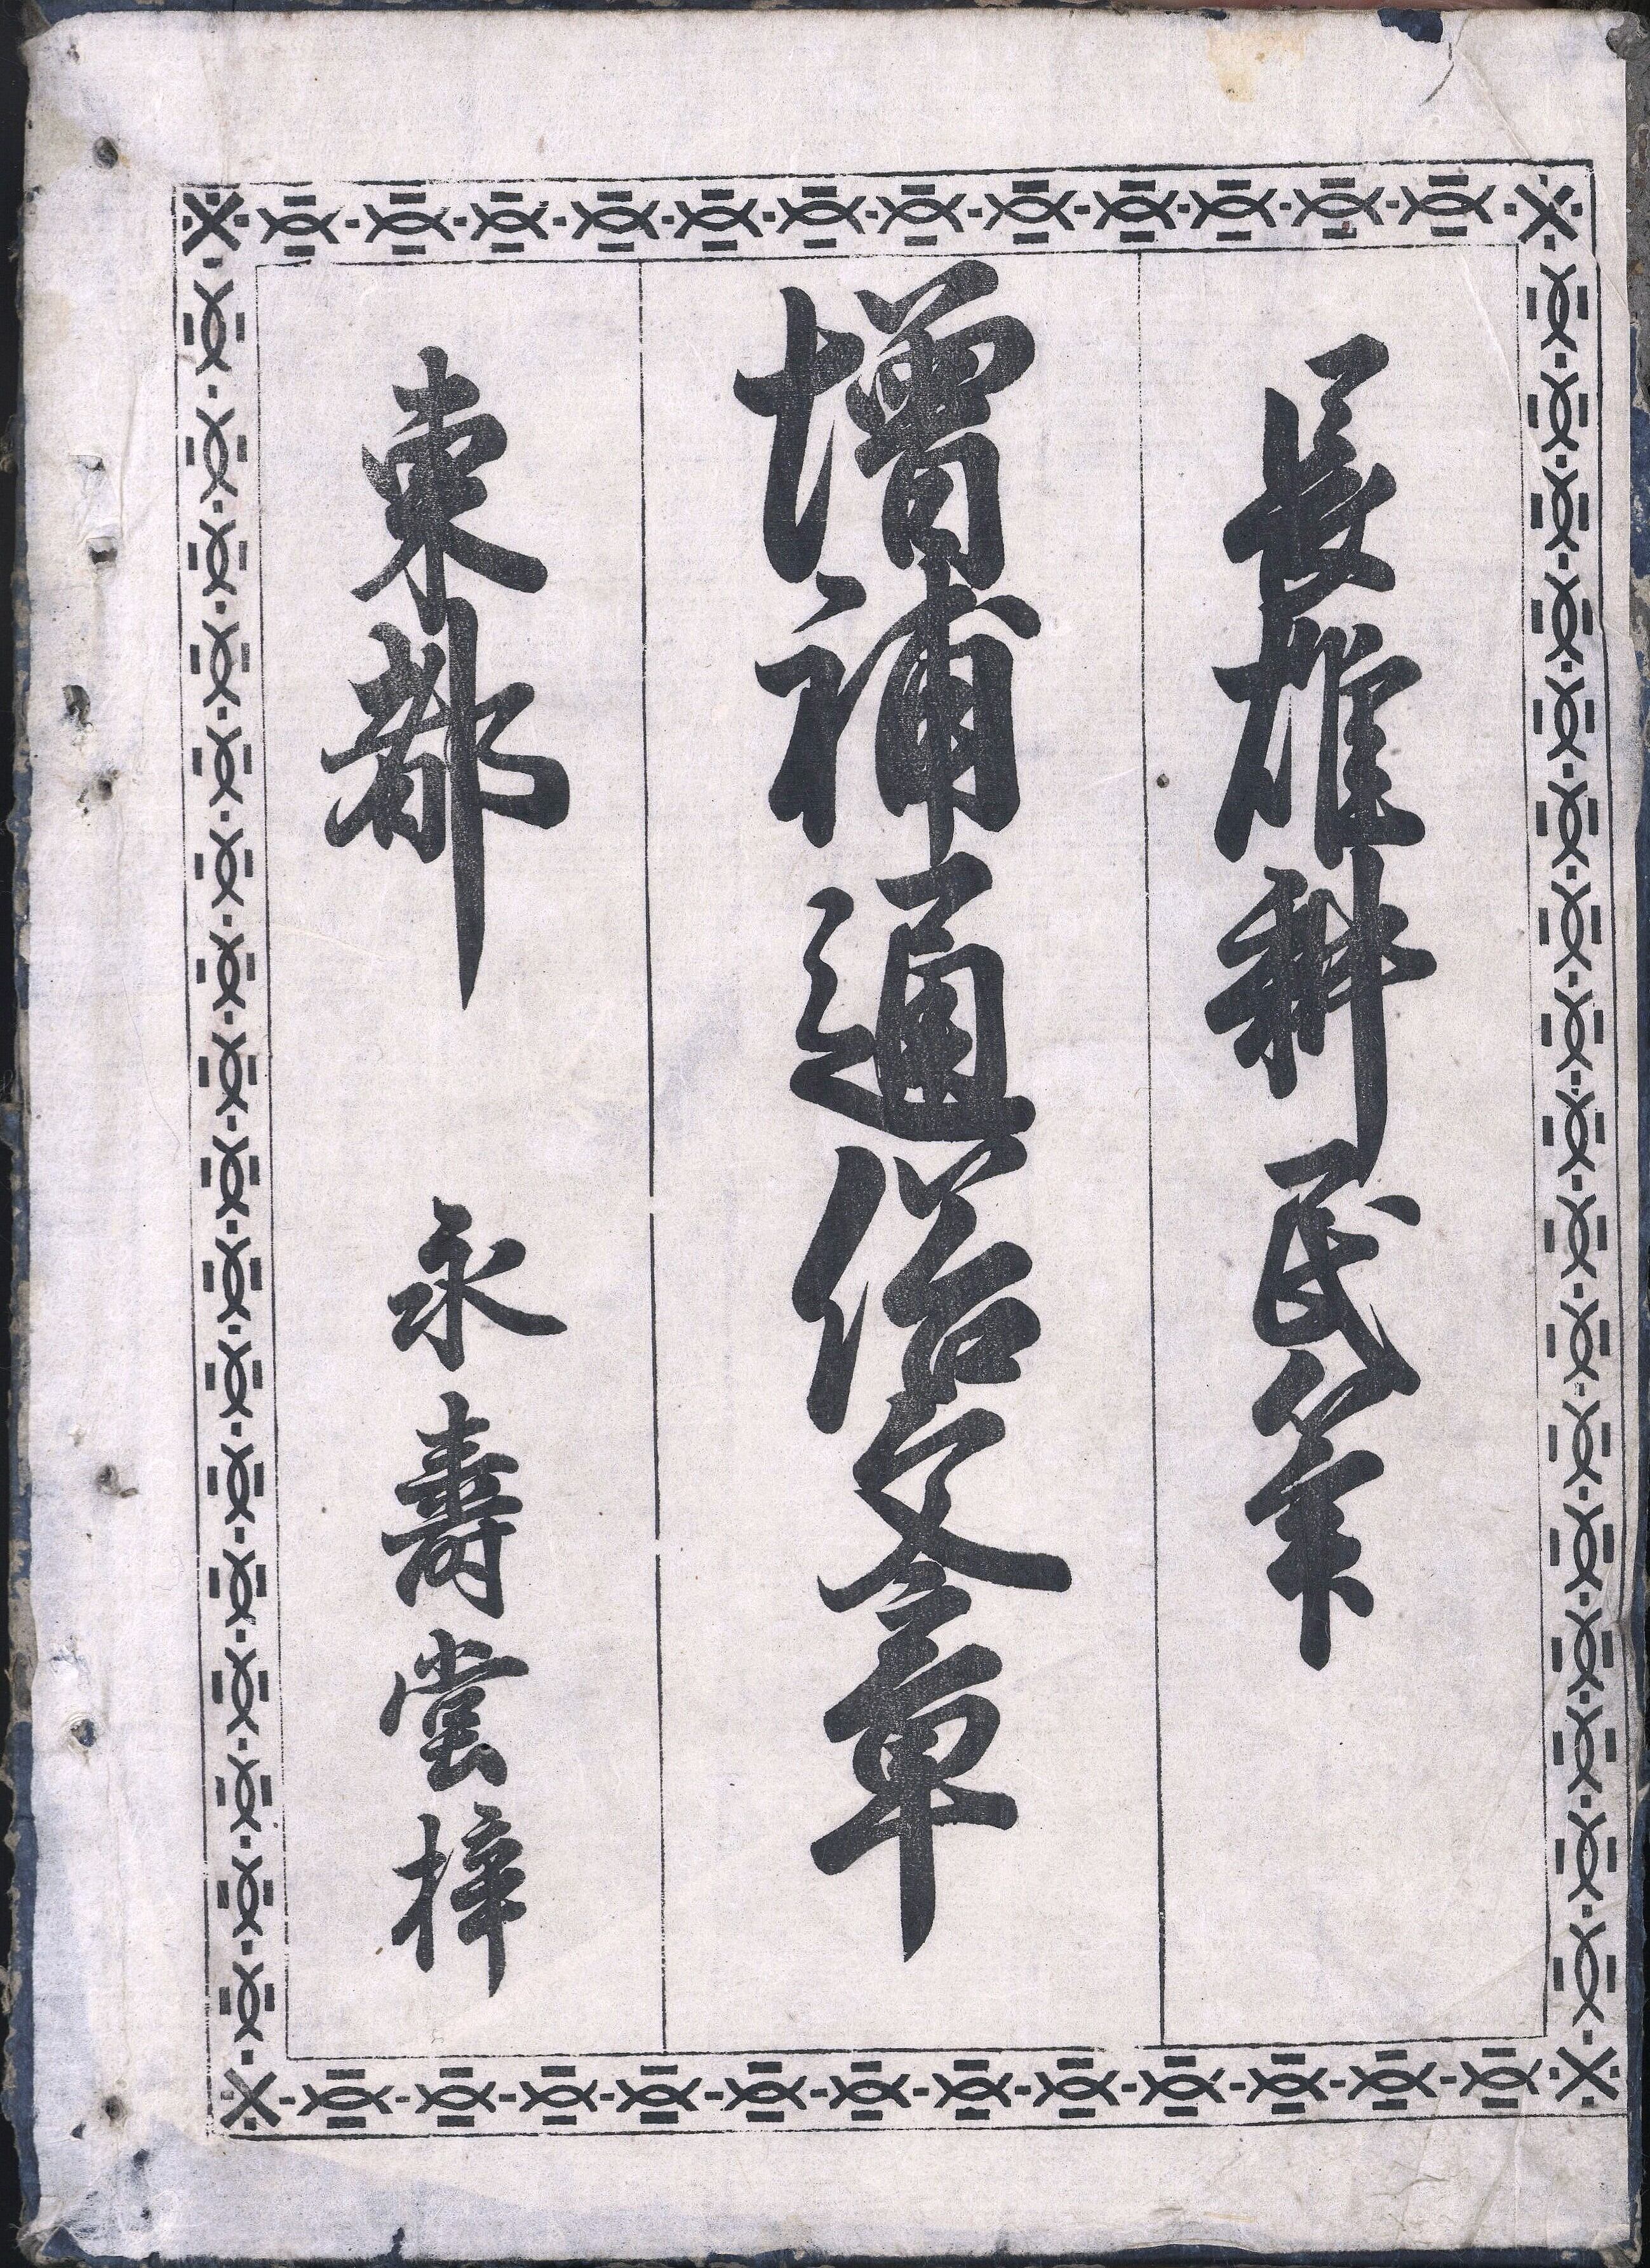 長雄耕民筆
增補通俗文章
東都　永壽堂梓